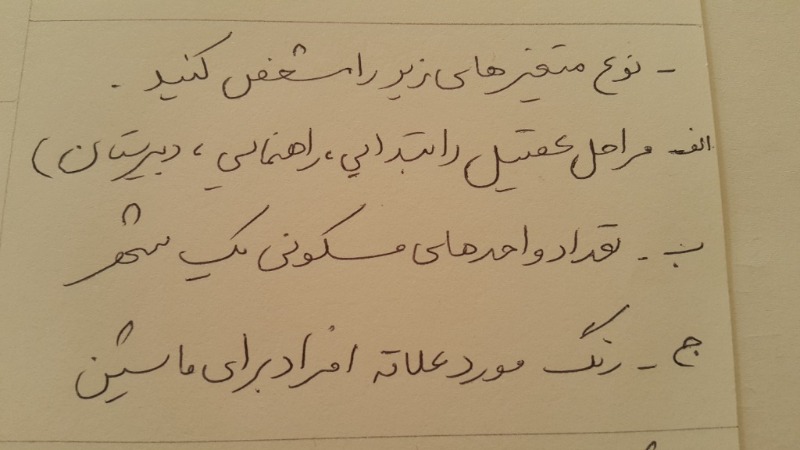 - نوع متغیرهای زیر را مشخص کنید .
الف - مراحل تحصیل (ابتدایی، راهنمایی، دبیرستان)
ب - تعداد واحدهای مسکونی یک شهر
ج - رنگ مورد علاقه افراد برای ماشین